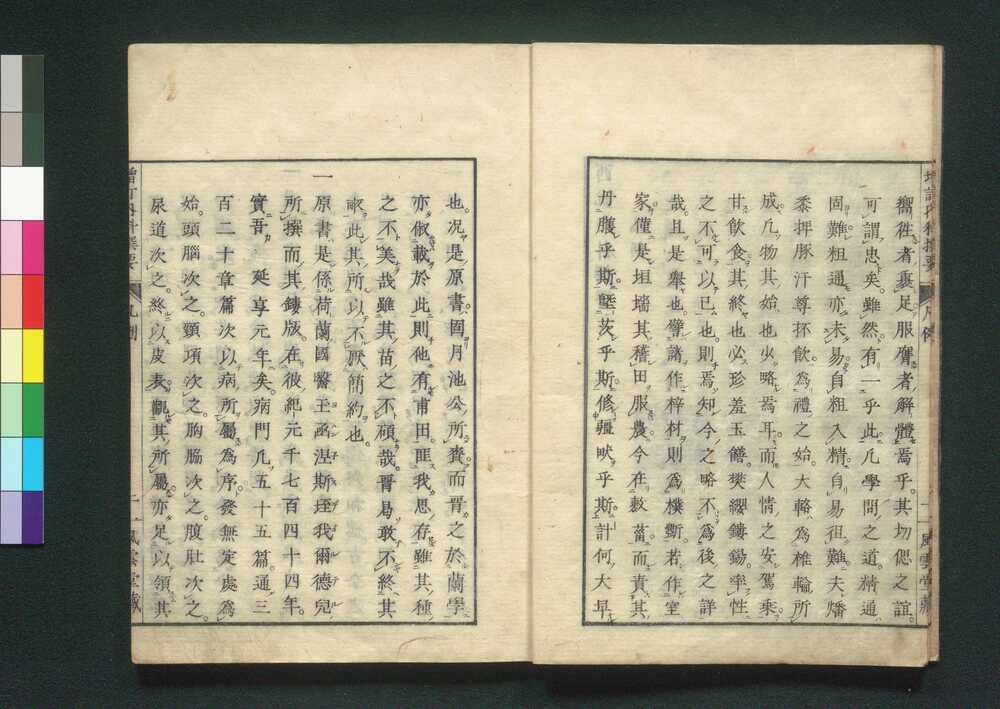 嚮往者裹足服膺者解體焉乎其切偲之誼
可謂忠矣雖然有一乎此凡學問之道精通
固難粗通亦未易自粗入精自易徂難夫燔
黍捭豚汙尊抔飮爲禮之始大輅爲椎輪所
成凡物其始也必略焉耳而人情之安駕乘
甘飲食其終也必珍羞玉饌樊纓鏤鍚率性
之不可以已也則焉知今之略不爲後之詳
哉且是擧也譬諸作梓材則爲樸斲若作室
家僅是垣墻其稽田服農今在敷菑而責其
丹雘乎斯塈茨乎斯修疆畎乎斯計何大早
也況是原書固月池公所賚而晋之於蘭學
亦俶載於此則他有甫田匪我思存雖其種
之不美哉雖其苗之不碩哉晋易敢不終其
畝此其所以不厭簡約也
一
原書是係荷蘭國醫王函涅斯垤我爾德兒
所撰而其鏤版在彼紀元千七百四十四年
實吾 延享元年矣病門凡五十五篇通三
百二十章篇次以病所屬爲序發無定處爲
始頭腦次之頸項次之胸脇次之腹肚次之
尿道次之終以皮表觀其所屬亦足以領其
増訂内科撰要 凡例 風雲堂藏